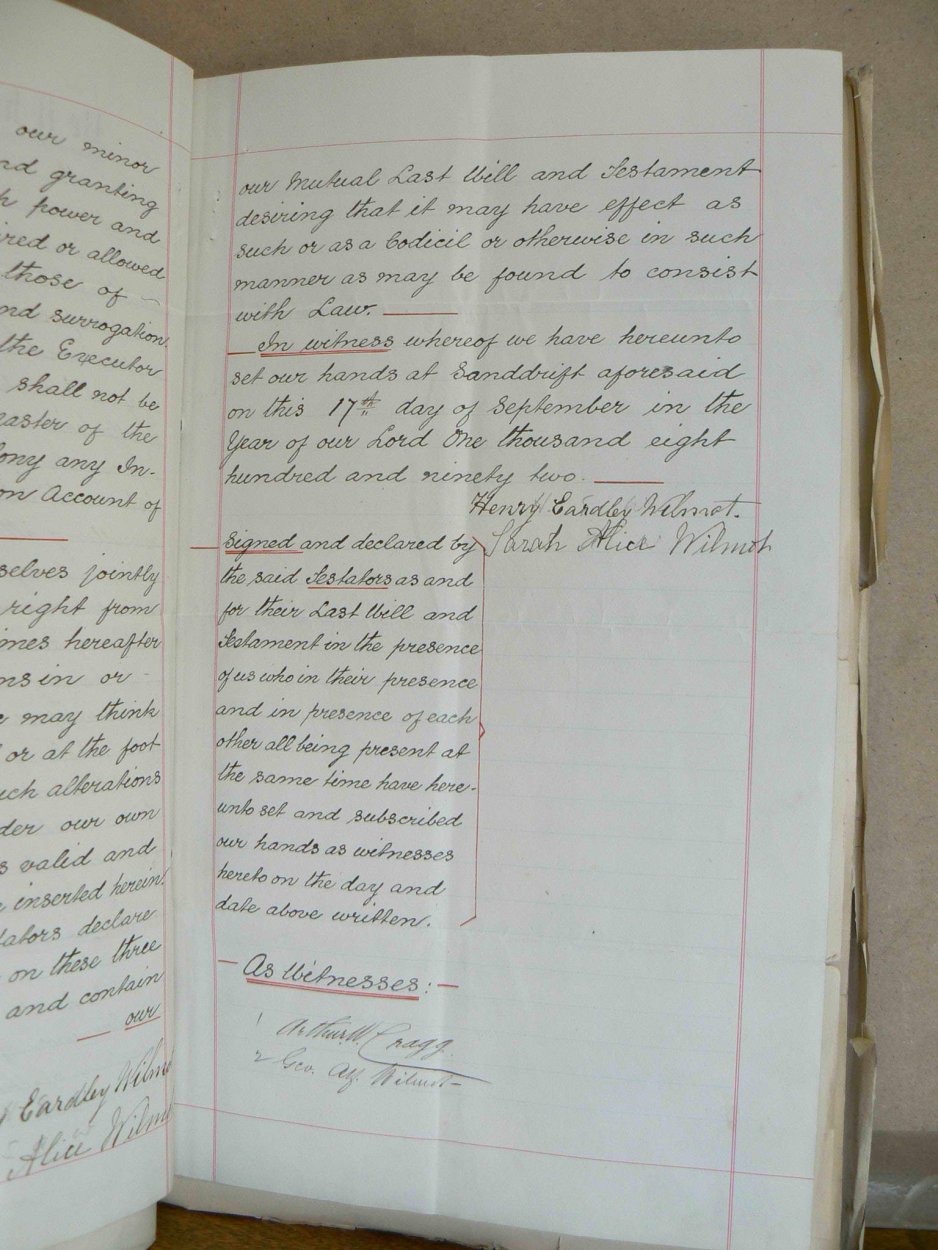 our minor
nd granting
h power and
ired or allowed
those of
nd surrogation
the Executor
shall not be
master of the
ony any In-
on Account of
selves jointly
right from
mes hereafter
ns in or
e may think
or at the foot
uch alterations
der our own
s valid and
e inserted herein.
tators declare
on these three
and contain
our
Eardley Wilmo
Alice Wilmo
our Mutual Last Will and Testament
desiring that it may have effect as
such or as a Codicil or otherwise in such
manner as may be found to consist
with Law.
In witness whereof we have hereunto
set our hands at Sanddrift aforesaid
on this 17th day of September in the
Year of our Lord One thousand eight
hundred and ninety two.
Henry Eardley Wilmot.
Sarah Alice Wilmot
Signed and declared by
the said Testators as and
for their Last Will and
Testament in the presence
of us who in their presence
and in presence of each
other all being present at
the same time have here-
unto set and subscribed
our hands as witnesses
hereto on the day and
date above written.
As Witnesses:
1 Arthur W. Cragg.
2 Geo. Alf. Wilmot